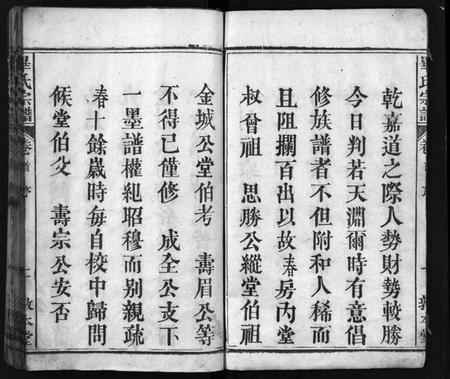 乾嘉道之際人勢財勢較勝
今日判若天淵爾時有意倡
修族譜者不但附和人稀而
且阻攔百出以故春房內堂
叔曾祖 思勝公縱堂伯祖
金城公堂伯考 壽眉公等
不得已僅修 成全公支下
一墨譜權紀昭穆而別親疏
春十餘歲時每自校中歸問
候堂伯父 壽宗公安否
畢氏宗譜
卷首
敦本堂